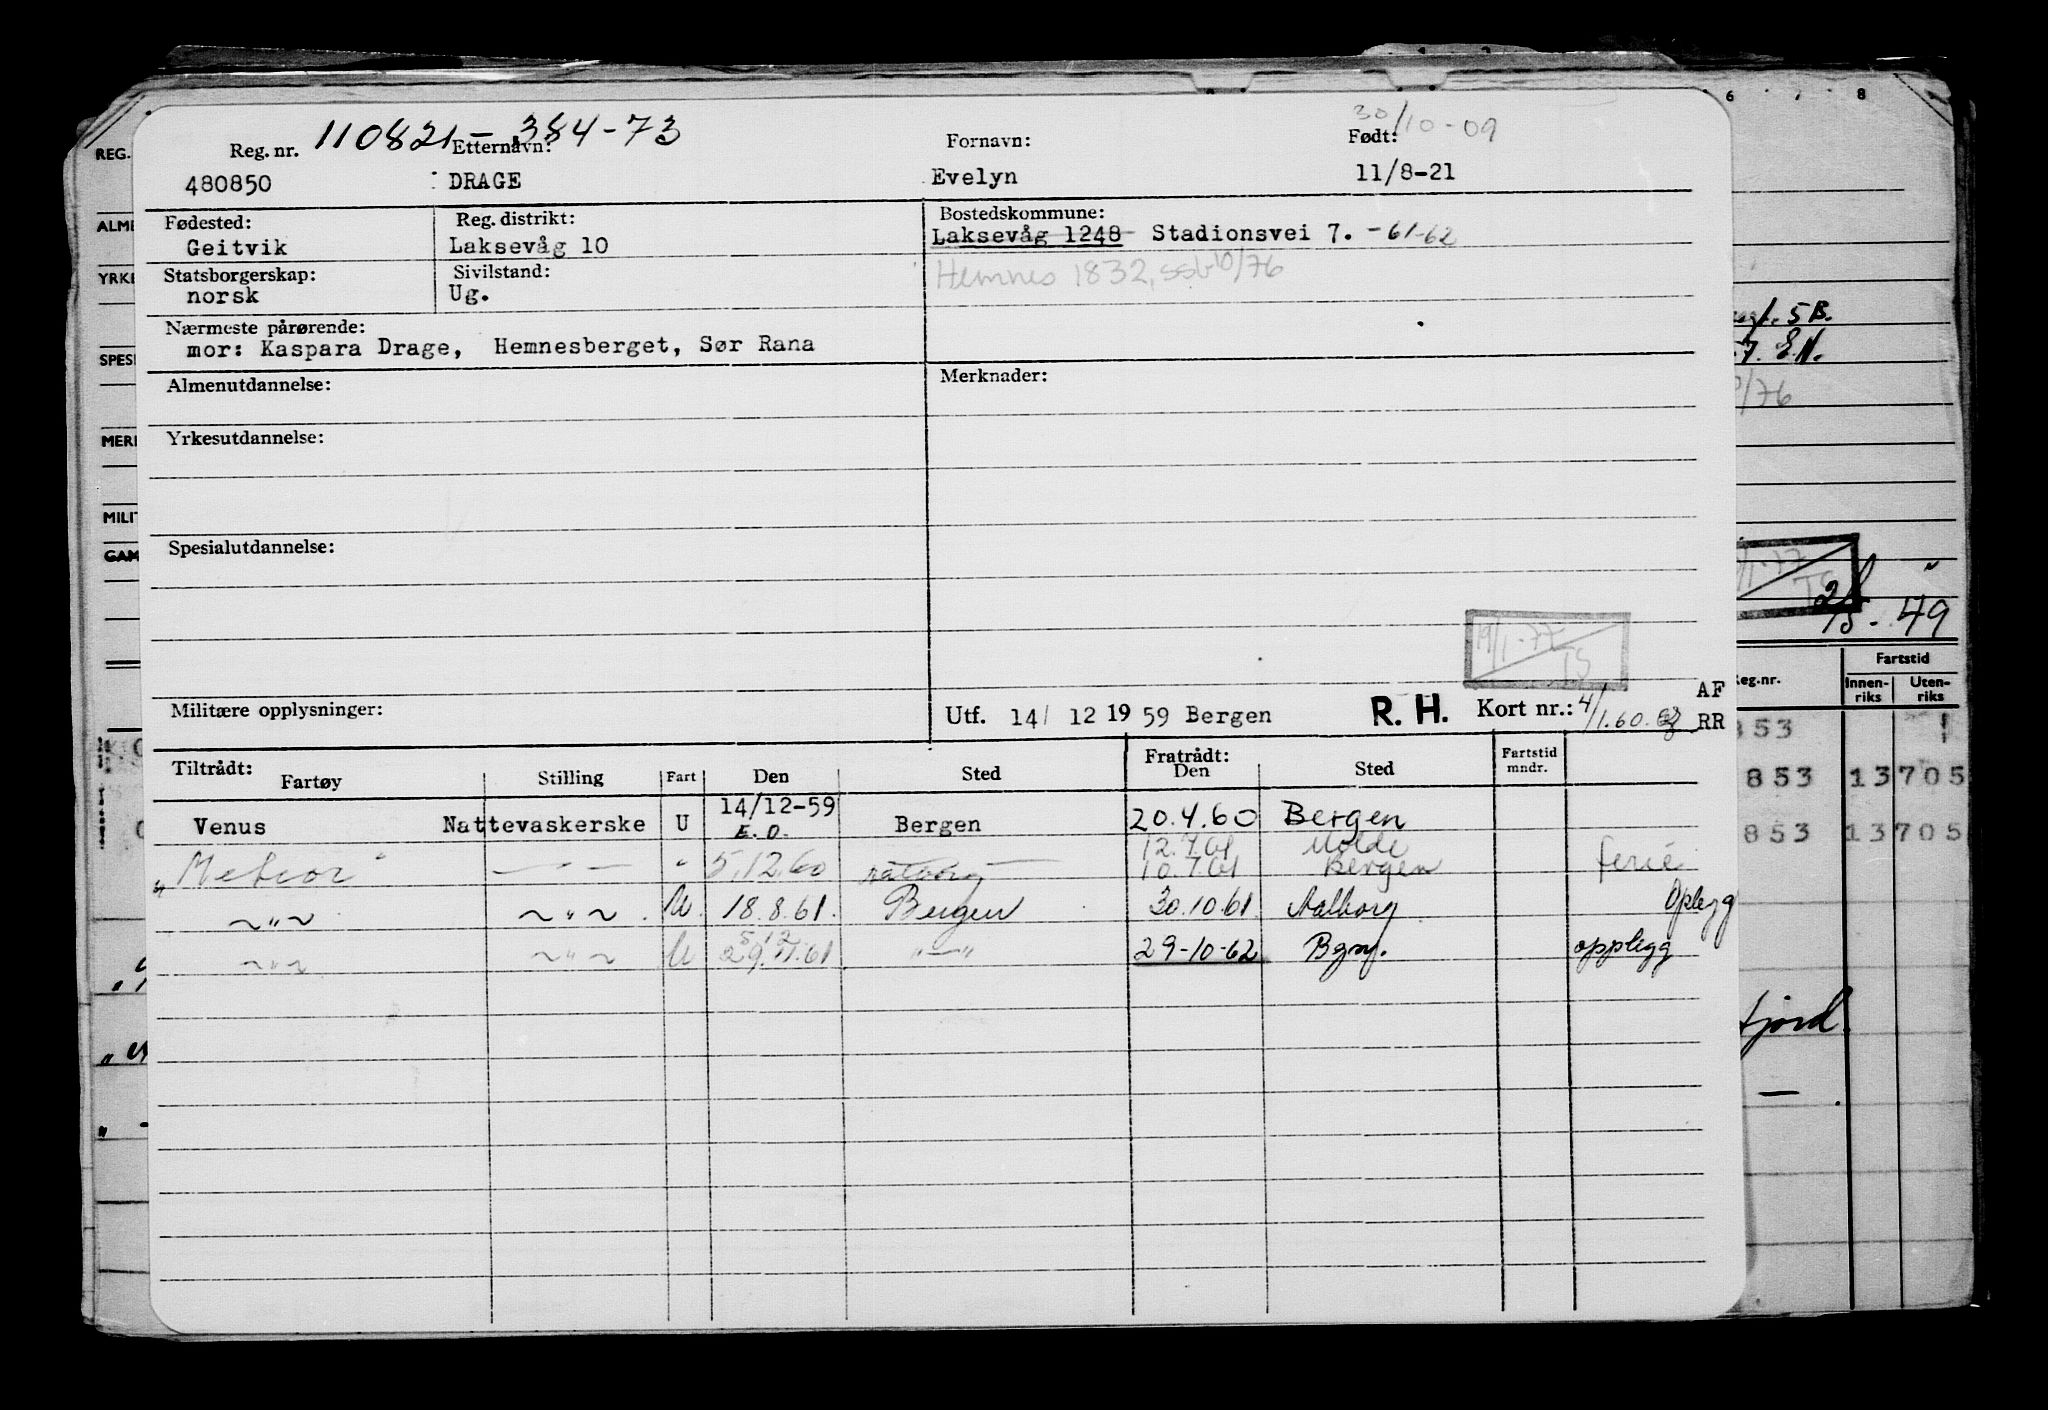 110821-384-73 30/10-09
Reg. nr. Etternavn: Fornavn: Født:
480850 DRAGE Evelyn 11/8-21
Fødested: Reg. distrikt: Bostedskommune:
Geitvik Laksevåg 10 Laksevåg 1248 Stadionsvei 7. -61-62
Statsborgerskap: Sivilstand: Hemnes 1832,
norsk Ug.
Nærmeste pårørende:
mor: Kaspara Drage, Hemnesberget, Sør Rana
Almenutdannelse: Merknader:
Yrkesutdannelse:
Spesialutdannelse:
19/1-77
TS
Militære opplysninger: Utf. 14/ 12 19 59 Bergen R. H. Kort nr.: 4/1.60. AF
RR
Tiltrådt: Fratrådt: Fartstid
Fartøy Stilling Fart Den Sted Den Sted mndr.
Venus Nattevaskerske U 14/12-59 Bergen 20.4.60 Bergen
E.O.
12.7.61 Molde
"Meteor" — " — " 5.12.60 10.7.61 Bergen ferie
~"~ ~"~ U. 18.8.61. Bergen 30.10.61. Aalborg Oplegg
~"~ ~"~ U —"— 29-10-62 Bgn. opplegg
REG.
ALME
YRKE
SPESI
MERI
MILIT
GAM
6 7 8
5B.
/76
- 49
Reg.nr. Fartstid
Innen-
riks Uten-
riks
853
853 13705
853 13705
fjord